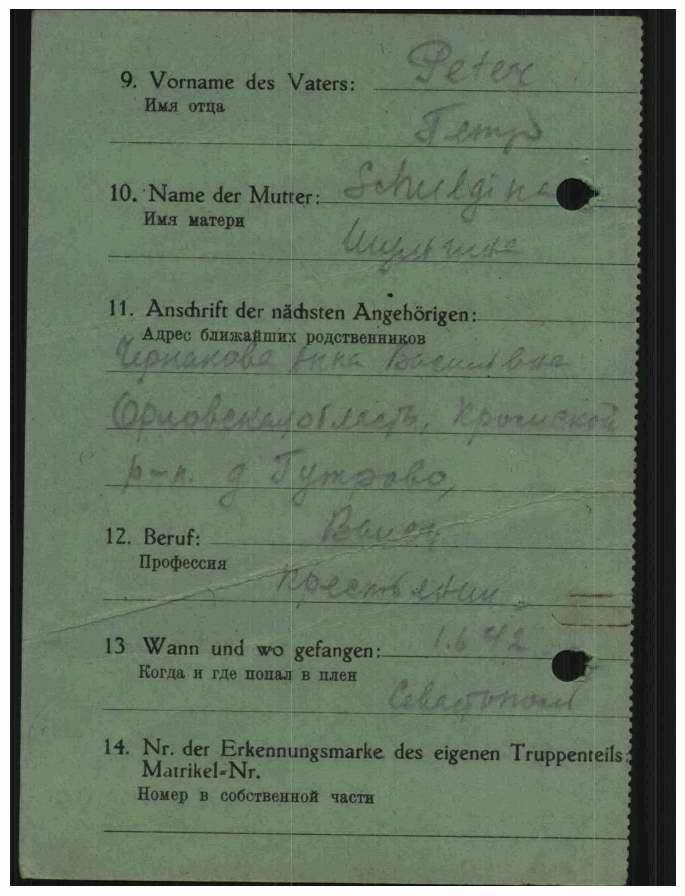 9. Vorname des Vaters: Peter
Имя отца
Петр
10. Name der Mutter: Schulgina
Имя матери
Шульгина
11. Anschrift der nächsten Angehörigen:
Адрес ближайших родственников
Чернакова Анна Васильевна
Орловская область, Кромской
р-н. д Гутрово,
12. Beruf: Bauer
Профессия
Крестьянин
13 Wann und wo gefangen: 1.6 42
Когда и где попал в плен
Севастополь
14. Nr. der Erkennungsmarke des eigenen Truppenteils:
Matrikel-Nr.
Номер в собственной части